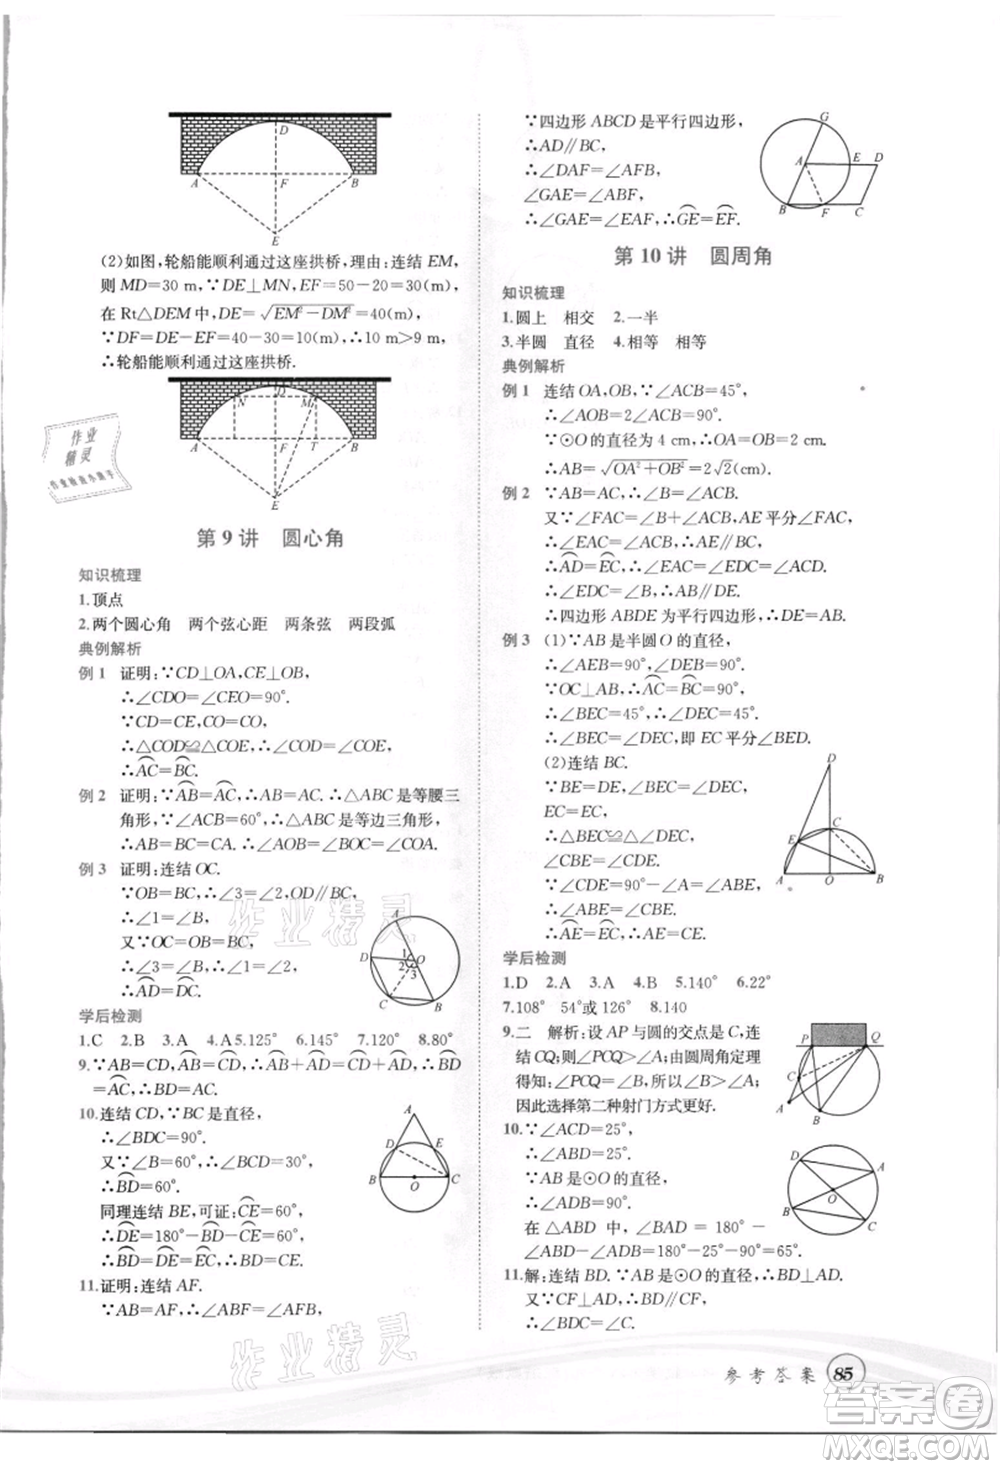 D
A F B
E
(2)如图,轮船能顺利通过这座拱桥,理由:连结 EM,
则 MD=30 m,∵DE⊥MN,EF=50-20=30(m),
在 Rt△DEM 中,DE=√(EM²-DM²)=40(m),
∵DF=DE-EF=40-30=10(m),10 m>9 m,
∴轮船能顺利通过这座拱桥.
N D M
A F T B
E
第 9 讲 圆心角
知识梳理
1.顶点
2.两个圆心角 两个弦心距 两条弦 两段弧
典例解析
例 1 证明:∵CD⊥OA,CE⊥OB,
∴∠CDO=∠CEO=90°.
∵CD=CE,CO=CO,
∴△COD≌△COE,∴∠COD=∠COE,
∴A͡C=B͡C.
例 2 证明:∵A͡B=A͡C,∴AB=AC.∴△ABC是等腰三
角形,∵∠ACB=60°,∴△ABC是等边三角形,
∴AB=BC=CA.∴∠AOB=∠BOC=∠COA.
例 3 证明:连结 OC.
∵OB=BC,∴∠3=∠2,∵OD∥BC,
∴∠1=∠B,
又∵OC=OB=BC,
∴∠3=∠B,∴∠1=∠2,
∴A͡D=D͡C.
A
D 1 O
2 3
C B
学后检测
1.C 2.B 3.A 4.A 5.125° 6.145° 7.120° 8.80°
9.∵AB=CD,A͡B=C͡D,∴A͡B+A͡D=C͡D+A͡D,∴B͡D
=A͡C,∴BD=AC.
10.连结 CD,∵BC是直径,
∴∠BDC=90°.
又∵∠B=60°,∴∠BCD=30°,
∴B͡D=60°.
同理连结 BE,可证:C͡E=60°,
∴D͡E=180°-B͡D-C͡E=60°,
∴B͡D=D͡E=E͡C,∴BD=DE=EC.
A
D E
B O C
11.证明:连结 AF.
∵AB=AF,∴∠ABF=∠AFB,
∵四边形 ABCD 是平行四边形,
∴AD∥BC,
∴∠DAF=∠AFB,
∠GAE=∠ABF,
∴∠GAE=∠EAF,∴G͡E=E͡F.
G
A E D
B F C
第 10 讲 圆周角
知识梳理
1.圆上 相交 2.一半
3.半圆 直径 4.相等 相等
典例解析
例 1 连结 OA,OB,∵∠ACB=45°,
∴∠AOB=2∠ACB=90°.
∵⊙O的直径为 4 cm,∴OA=OB=2,
∴AB=√(OA²+OB²)=2√2(cm).
例 2 ∵AB=AC,∴∠B=∠ACB.
又∵∠FAC=∠B+∠ACB,AE平分∠FAC,
∴∠FAE=∠EAC=∠B=∠ACB.
∴A͡D=E͡C.∴∠DAC=∠EDA,
∴∠EDC=∠B,∴AB∥DE.
∴四边形 ABDE 为平行四边形,∴DE=AB.
例 3 (1)∵AB是半圆O的直径,
∴∠AEB=90°,∠DEB=90°.
∵OC⊥AB,∴A͡C=B͡C=90°,
∴∠BEC=45°,∴∠DEC=45°.
∴∠BEC=∠DEC,即 EC平分∠BED.
(2)连结 BC.
∵BE=DE,∠BEC=∠DEC,
EC=EC,
∴△BEC≌△DEC,
∠CBE=∠CDE.
∵∠CDE=90°-∠A=∠ABE,
∴∠ABE=∠CBE.
∴A͡E=E͡C,∴AE=EC.
D
E C
A O B
学后检测
1.D 2.A 3.A 4.B 5.140° 6.22°
7.108° 54°或 126° 8.140
9.二 解析:设 AP与圆的交点是 C,连
结CQ;则∠PCQ>∠A;由圆周角定理
得知:∠PCQ=∠B;所以∠B>∠A.
因此选择第二种射门方式更好.
P Q
C
A B
10.∵∠ACD=25°,
∴∠ABD=25°.
∵AB是⊙O的直径,
∴∠ADB=90°.
在△ABD 中,∠BAD = 180° -
∠ABD-∠ADB=180°-25°-90°=65°.
D A
O
B C
11.解:连结 BD.∵AB是⊙O的直径,∴BD⊥AD.
又∵CF⊥AD,∴BD∥CF,
∴∠BDC=∠C.
参考答案 85
作业
精灵
作业精灵
作业精灵
答案圈
MXQE.COM